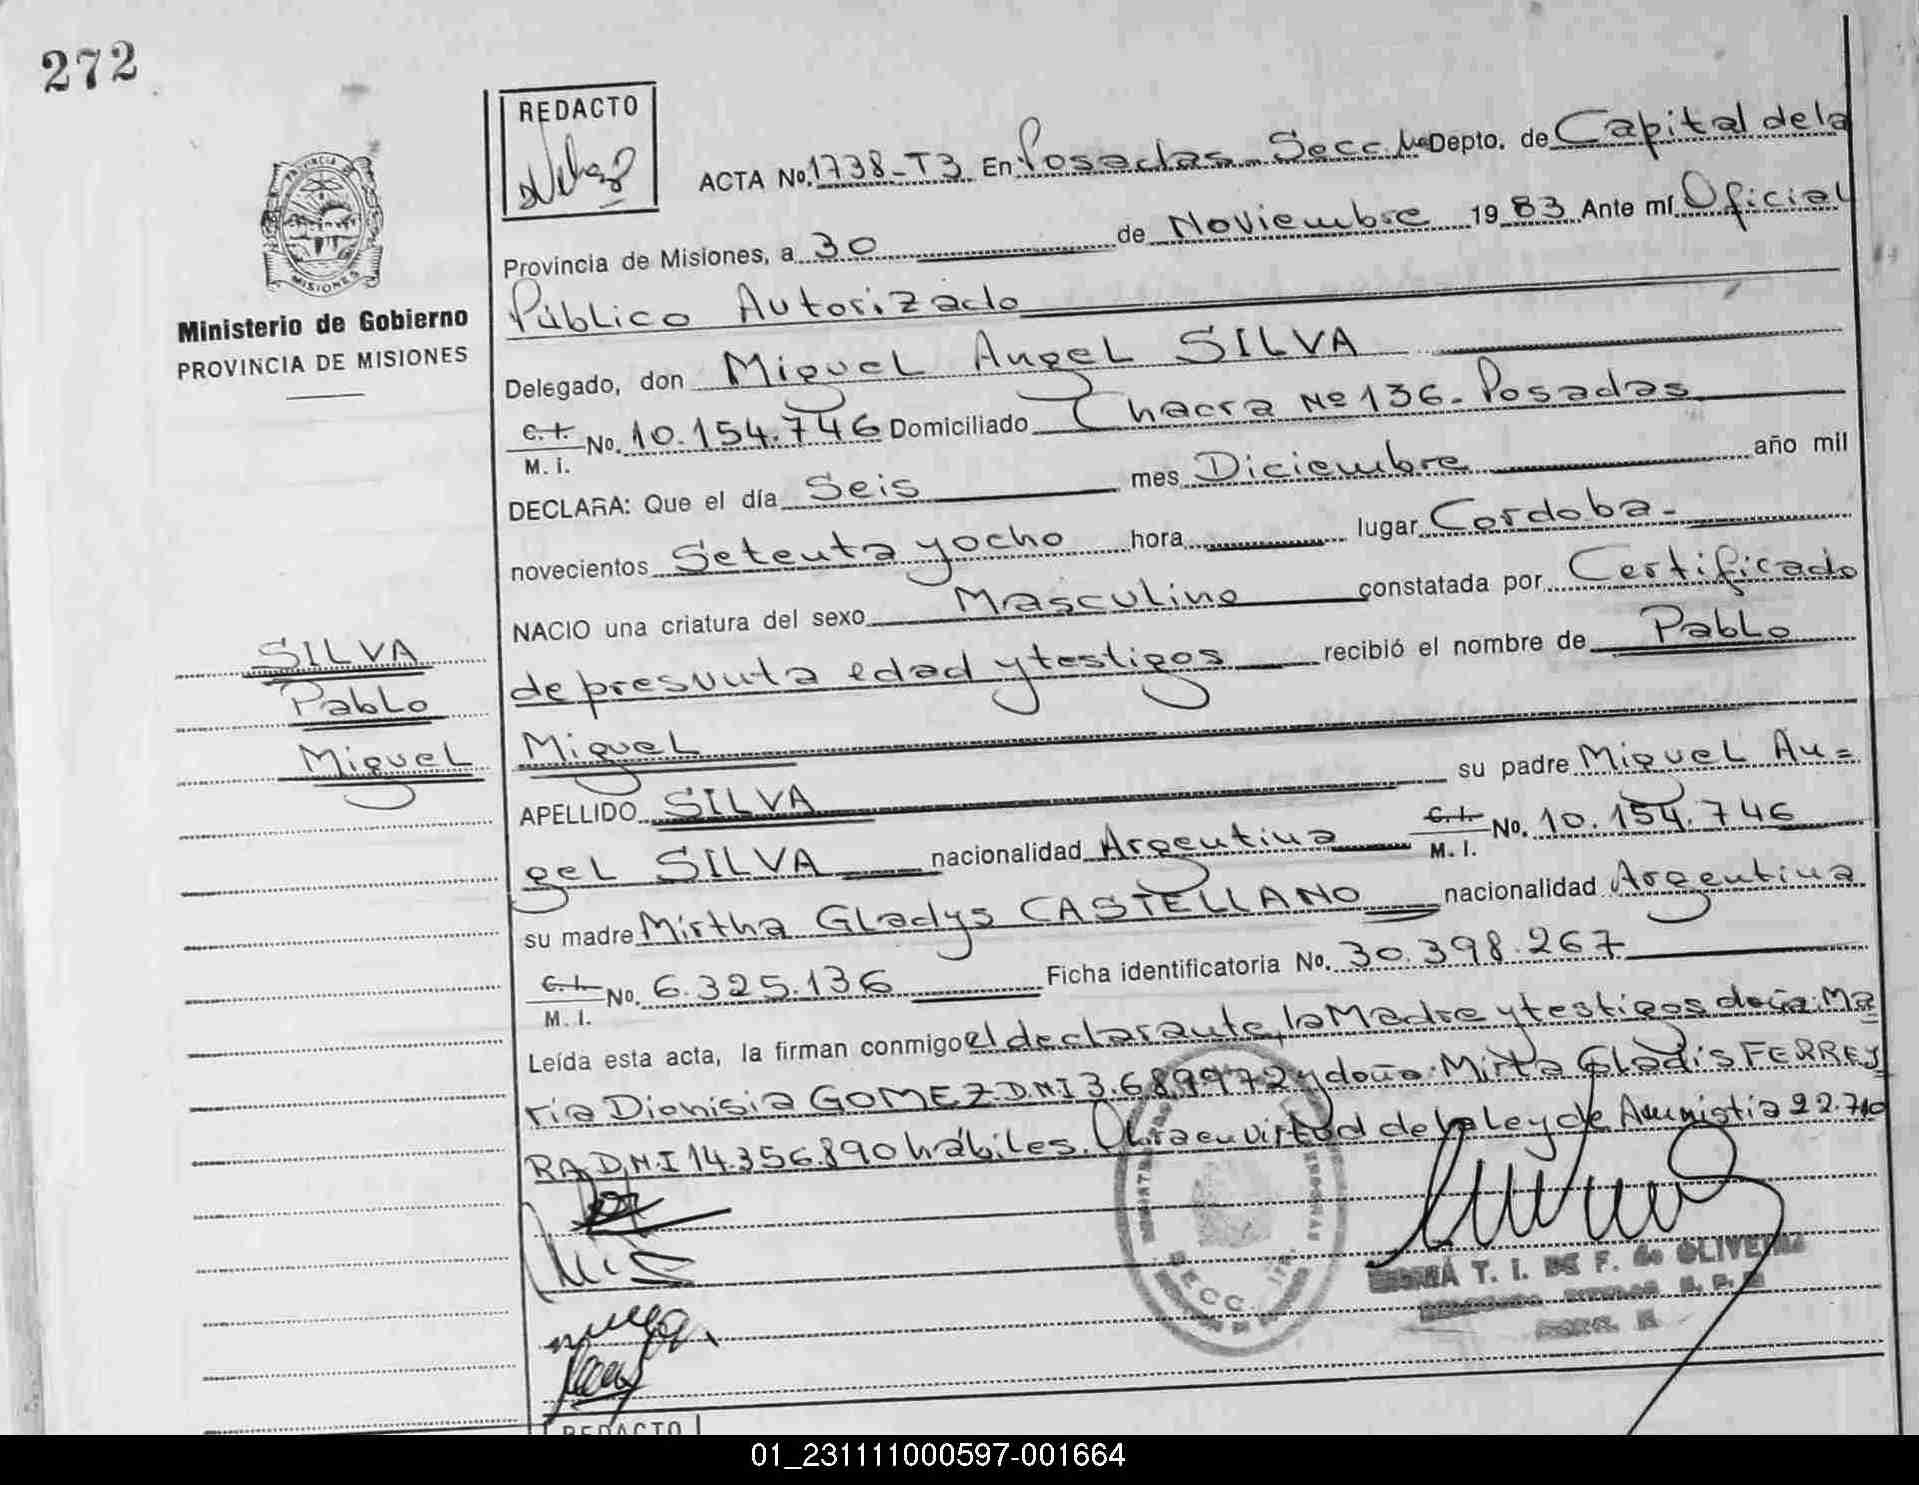 272
REDACTO
ACTA No. 1738-T3 En Posadas Secc. Depto. de Capital de la
Provincia de Misiones, a 30 de Noviembre 1983 Ante mí Oficial
Público Autorizado
Delegado, don Miguel Angel SILVA
C.I. M.I. No. 10.154.746 Domiciliado Chacra Nº 136- Posadas
DECLARA: Que el día Seis mes Diciembre año mil
novecientos Setenta y ocho hora lugar Cordoba-
NACIO una criatura del sexo Masculino constatada por Certificado
de presunta edad y testigos recibió el nombre de Pablo
Miguel
APELLIDO SILVA su padre Miguel An=
gel SILVA nacionalidad Argentina C.I. M.I. No. 10.154.746
su madre Mirtha Gladys CASTELLANO nacionalidad Argentina
C.I. M.I. No. 6.325.136 Ficha identificatoria No. 30.398.267
Leída esta acta, la firman conmigo el declarante, la Madre y testigos doña: Ma
ría Dionisia GOMEZ D.N.I 3.689972 y doña: Mirta Gladis FERREY
RA D.N.I 14.356.890 hábiles. Obra en virtud de la Ley de Amnistia 22.710
PROVINCIA
MISIONES
Ministerio de Gobierno
PROVINCIA DE MISIONES
SILVA
Pablo
Miguel
SECC.
T. I. DE F. de OLIVEIRA
REDACTO
01_231111000597-001664